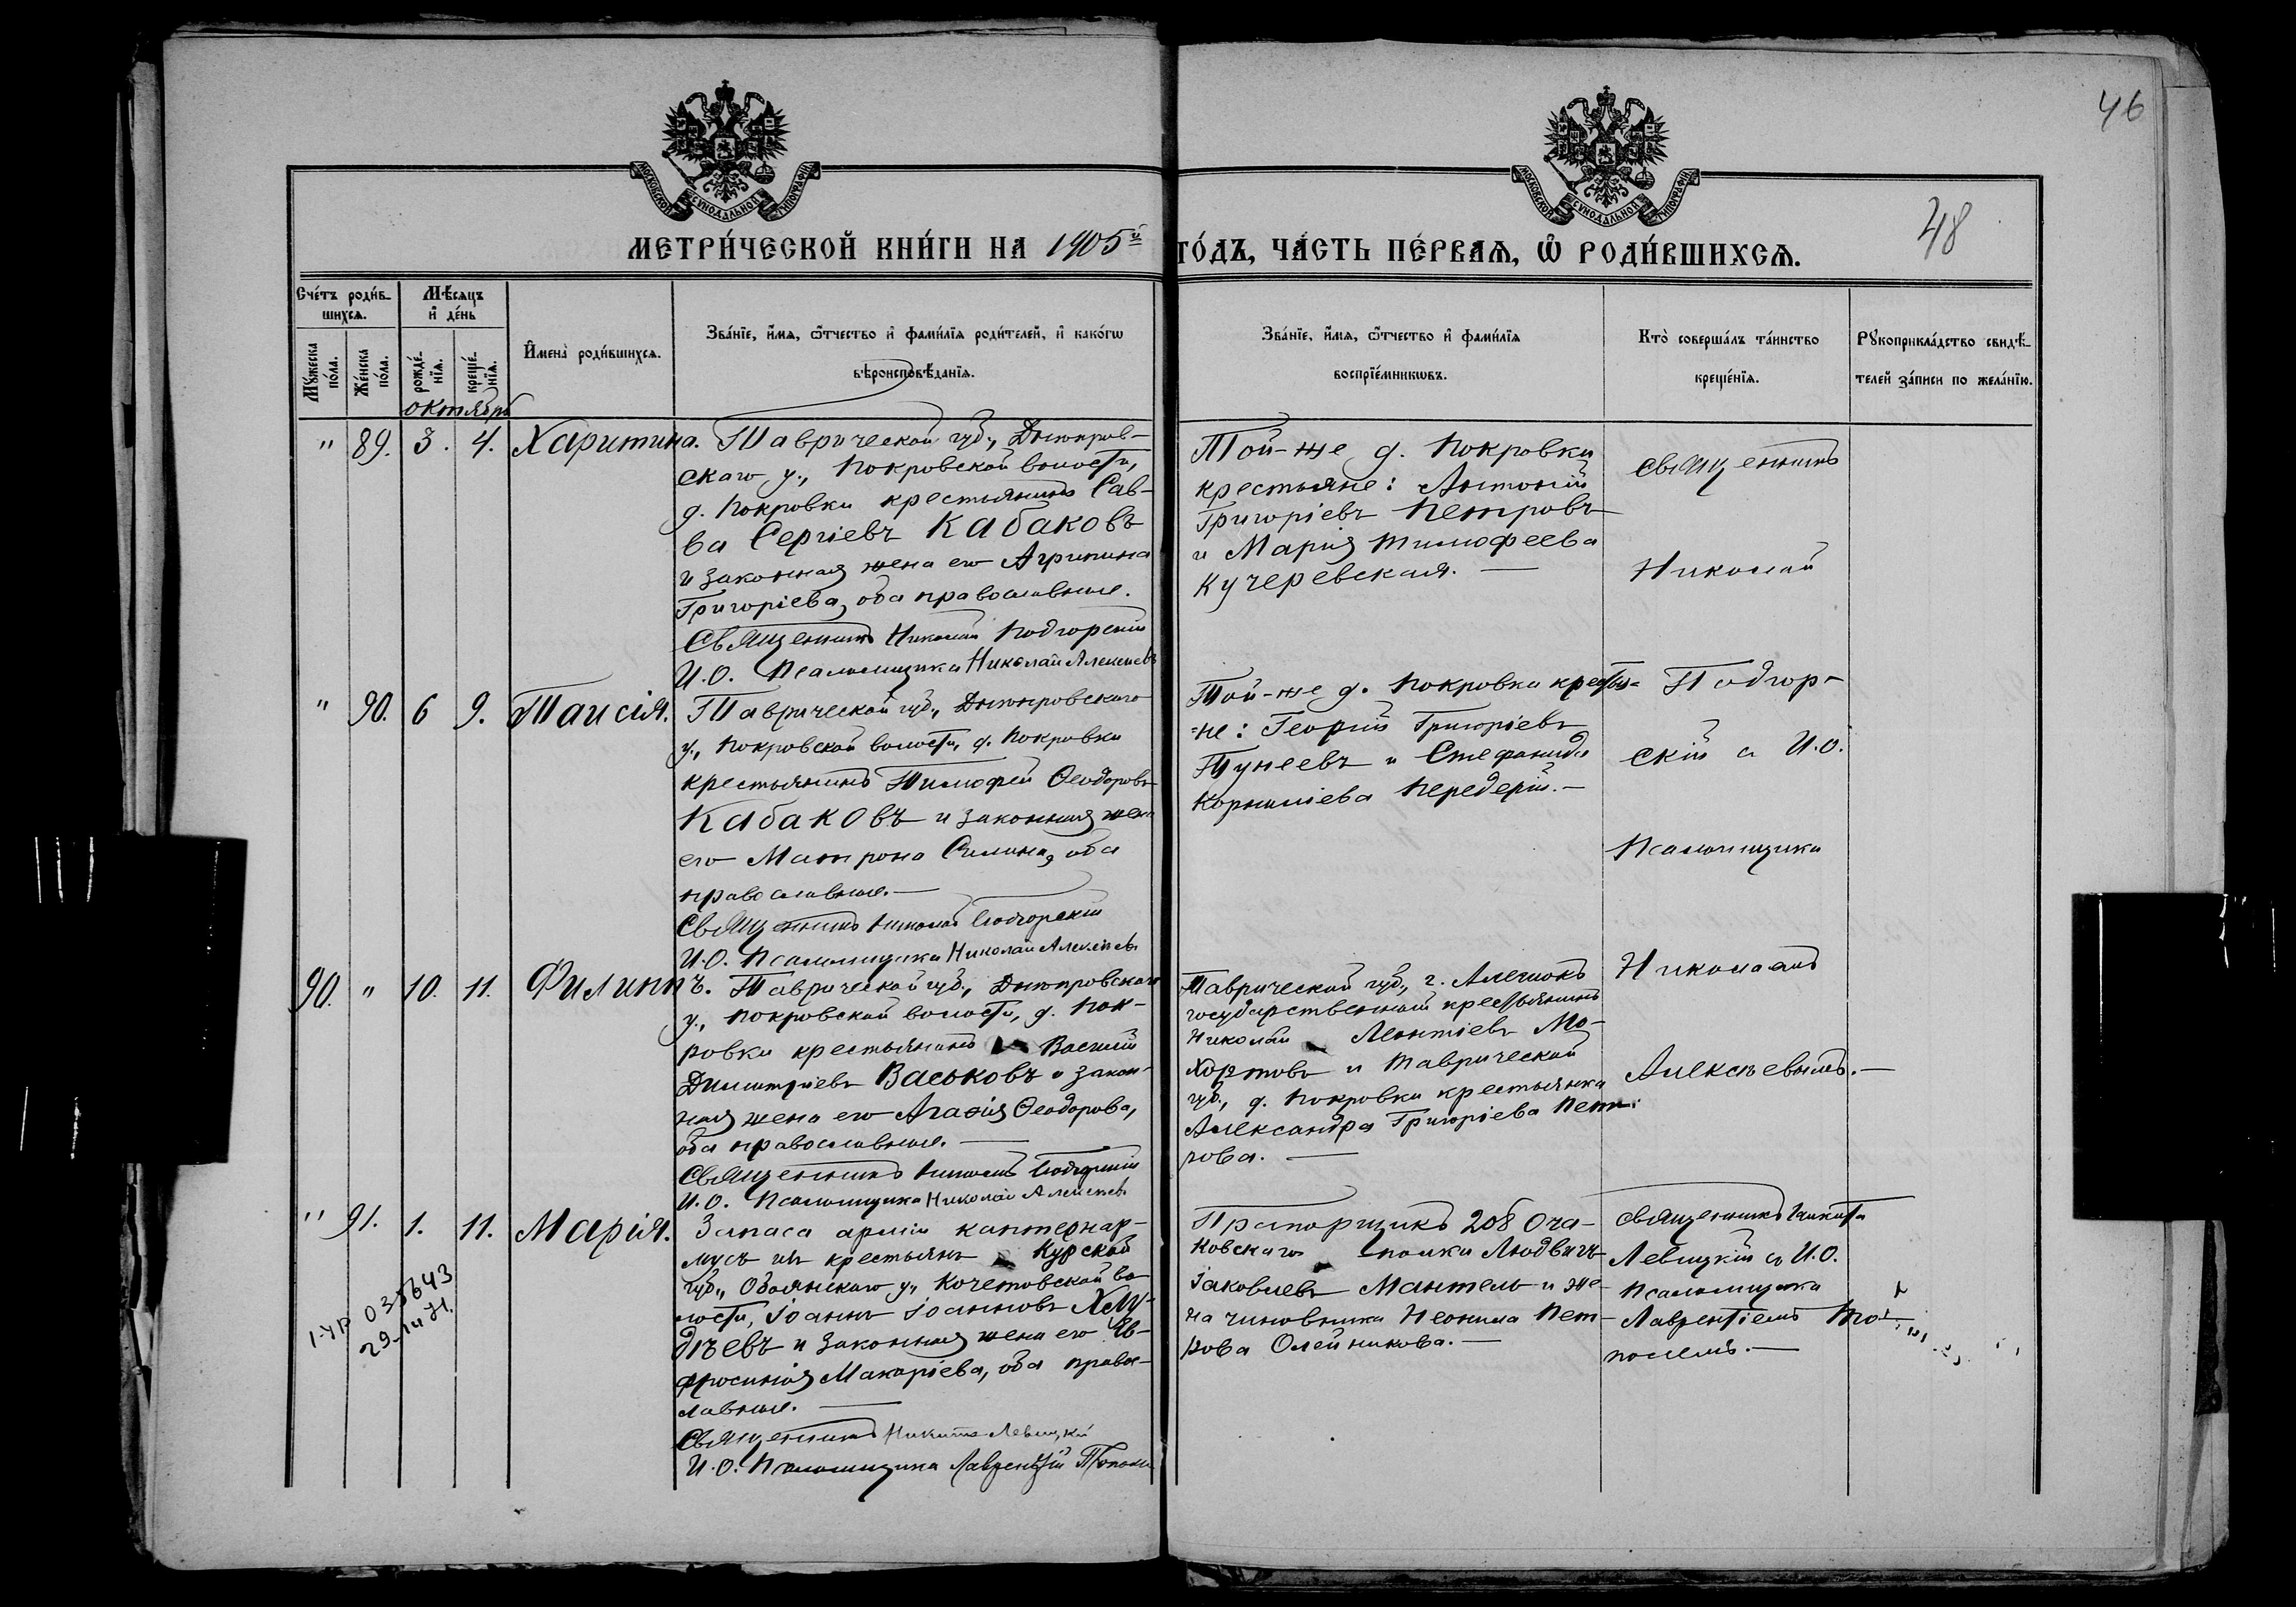 46
48
МОСКОВСКОЙ СѴНОДАЛЬНОЙ ТИПОГРАФІИ
МОСКОВСКОЙ СѴНОДАЛЬНОЙ ТИПОГРАФІИ
МЕТРИ́ЧЕСКОЙ КНИ́ГИ НА 1905й ГО́ДЪ, ЧА́СТЬ ПЕ́РВАѦ, Ѿ РОДИ́ВШИХСѦ.
Сче́тъ роди́в-
шихсѧ.
Мꙋ́жеска по́ла.
Же́нска по́ла.
Мѣ́сѧцъ
и҆ де́нь
рожде́-
нїѧ.
креще́-
нїѧ.
И҆мена̀ роди́вшихсѧ.
Зва́нїе, и҆́мѧ, ѻ҆́тчество и҆ фами́лїѧ роди́телей, и҆ како́гѡ
вѣроисповѣ́данїѧ.
Зва́нїе, и҆́мѧ, ѻ҆́тчество и҆ фами́лїѧ
воспрїе́мникѡвъ.
Кто̀ соверша́лъ та́инство
креще́нїѧ.
Рꙋкоприкла́дство свидѣ́-
телей за́писи по жела́нїю.
октября
" 89. 3. 4. Харитина.
Таврической губ., Днѣпров-
скаго у., Покровской волости,
д. Покровки крестьянинъ Сав-
ва Сергіевъ Кабаковъ
и законная жена его Агрипина
Григоріева, оба православные.
Священникъ Николай Подгорскій
И.О. Псаломщика Николай Алексѣевъ
Той-же д. Покровки
крестьяне: Антоній
Григоріевъ Петровъ
и Марія Тимофеева
Кучеревская. —
Священникъ
Николай
Подгор-
скій и И.О.
Псаломщика
Николаемъ
Алексѣевымъ. —
" 90. 6 9. Таисія.
Таврической губ., Днѣпровскаго
у., Покровской волости, д. Покровки
крестьянинъ Тимофей Ѳеодоровъ
Кабаковъ и законная жена
его Матрона Силина, оба
православные. —
Священникъ Николай Подгорскій
И.О. Псаломщика Николай Алексѣевъ
Той-же д. Покровки крестья-
не: Георгій Григоріевъ
Тунеевъ и Стефанида
Корниліева Передерій. —
90. " 10. 11. Филиппъ.
Таврической губ., Днѣпровскаго
у., Покровской волости, д. Пок-
ровки крестьянинъ Василій
Димитріевъ Васьковъ и закон-
ная жена его Агафія Ѳеодорова,
оба православные. —
Священникъ Николай Подгорскій
И.О. Псаломщика Николай Алексѣевъ
Таврической губ., г. Алешокъ
государственный крестьянинъ
Николай Леонтіевъ Мо-
хортовъ и Таврической
губ., д. Покровки крестьянка
Александра Григоріева Пет-
рова. —
" 91. 1. 11. Марія.
Запаса арміи каптенар-
мусъ изъ крестьянъ Курской
губ., Обоянскаго у., Кочетовской во-
лости, Іоаннъ Іоанновъ Хлу-
дѣевъ и законная жена его Ев-
фросинія Макаріева, оба правос-
лавные. —
Священникъ Никита Левицкій
И.О. Псаломщика Лаврентій Тополь
Прапорщикъ 208 Оча-
ковскаго полка Людвигъ
Іаковлевъ Мантель и же-
на чиновника Неонила Пет-
рова Олейникова. —
Священникъ Никита
Левицкій и И.О.
Псаломщика
Лаврентіемъ То-
полемъ. —
035643